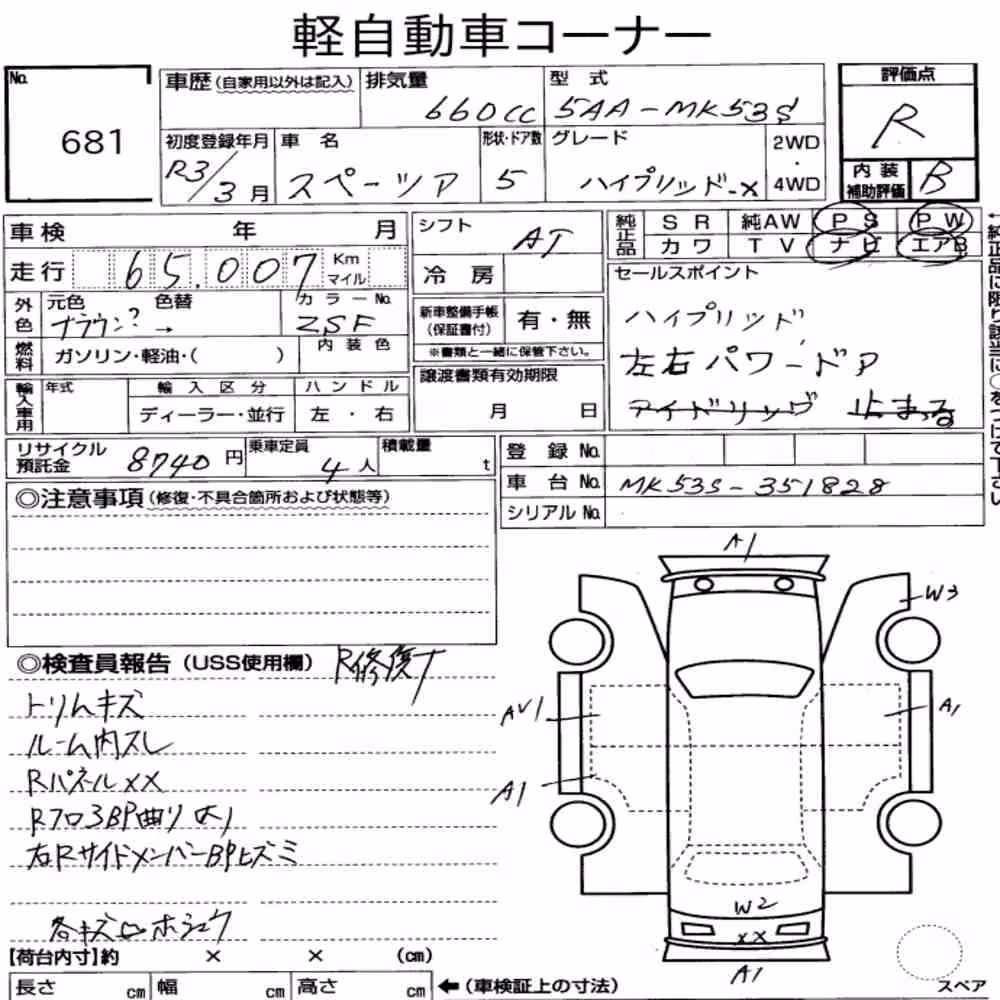 軽自動車コーナー
No. 681
車歴(自家用以外は記入) 排気量 660cc 型式 5AA-MK53S
評価点 R
初度登録年月 R3/3月 車名 スペーシア 形状・ドア数 5 グレード ハイブリッド-X 2WD・4WD
内装補助評価 B
車検 年 月
シフト AT
純正品 SR 純AW PS PW
カワ TV ナビ エアB
走行 65.007 Km マイル
冷房
セールスポイント
ハイブリッド
左右パワードア
アイドリング 止まる
外色 元色 ブラウン? 色替 → カラーNo. ZSF
新車整備手帳(保証書付) 有・無
※書類と一緒に保管下さい。
燃料 ガソリン・軽油・( ) 内装色
譲渡書類有効期限
月 日
輸入車用 年式 輸入区分 ハンドル
ディーラー・並行 左・右
リサイクル預託金 8740円 乗車定員 4人 積載量 t
登録No.
車台No. MK53S-351828
シリアルNo.
←純正品に限り該当に○をつけて下さい
◎注意事項(修復・不具合箇所および状態等)
◎検査員報告(USS使用欄) R修復歴
トリムキズ
ルーム内スレ
RパネルXX
Rフロ3BP曲り
右RサイドメンバーBPヒズミ
各キズ凹ホシュウ
A1
W3
AU1
A1
A1
W2
XX
A1
【荷台内寸】約 × × (cm)
長さ cm 幅 cm 高さ cm ←(車検証上の寸法)
スペア